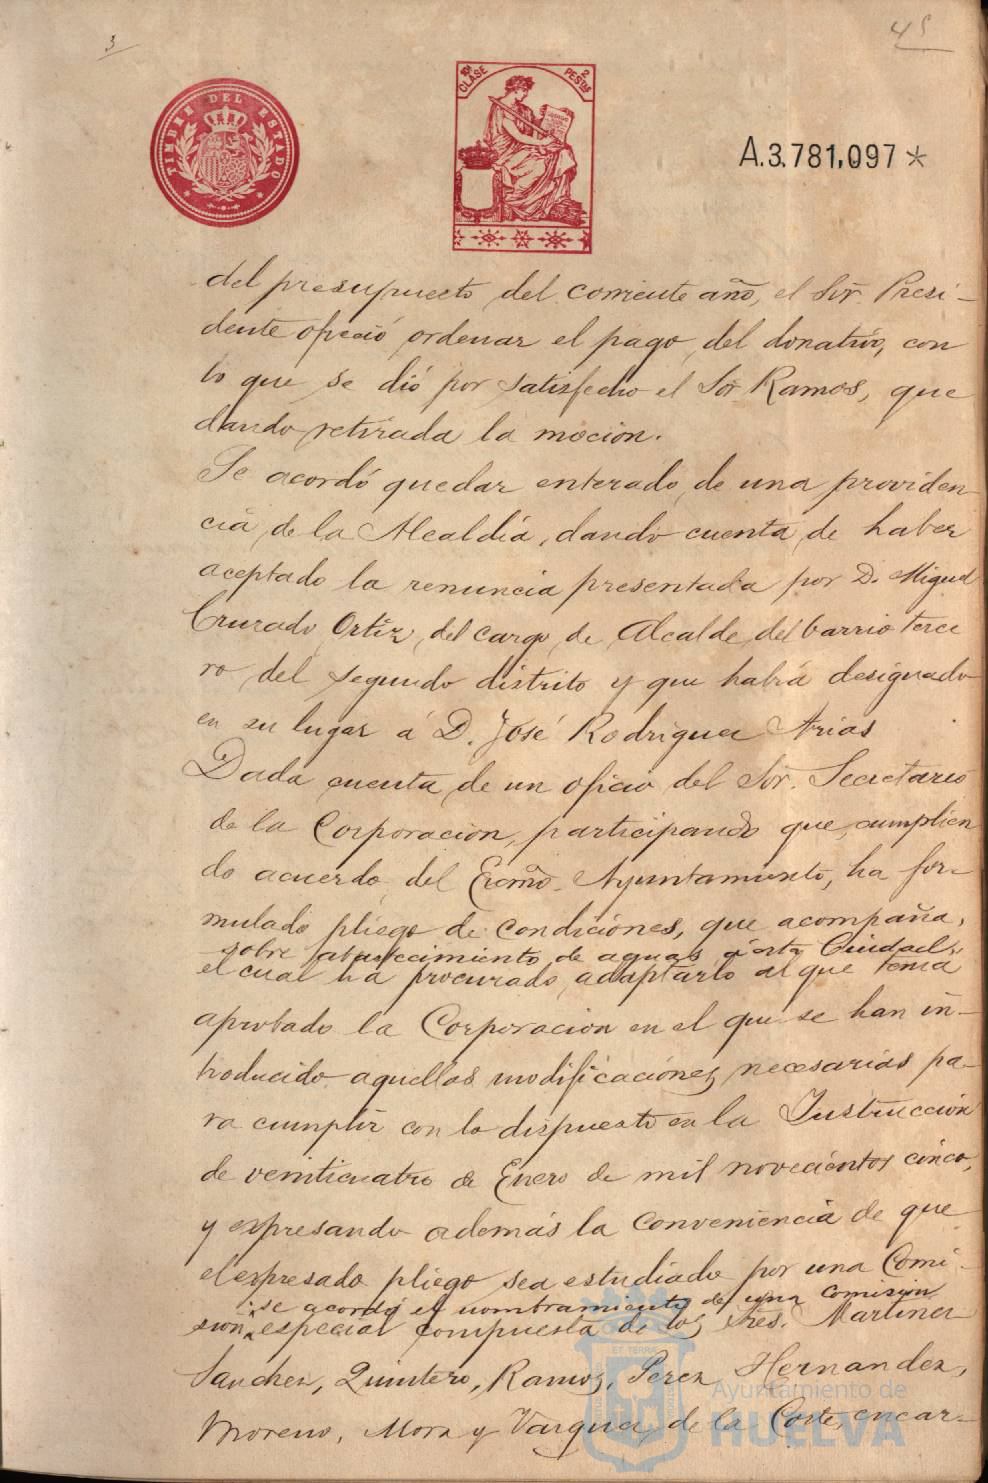 3
45
TIMBRE DEL ESTADO
10ª CLASE
2 PESTAS
A.3.781,097*
del presupuesto del corriente año, el Sor. Presi-
dente ofreció ordenar el pago del donativo, con
lo que se dió por satisfecho el Sor Ramos, que
dando retirada la mocion.
Se acordó quedar enterado de una providen
cia de la Alcaldía, dando cuenta de haber
aceptado la renuncia presentada por D. Miguel
Cruzado Ortiz, del cargo de Alcalde del barrio terce
ro del segundo distrito y que habia designado
en su lugar á D. José Rodriguez Arias
Dada cuenta de un oficio del Sor. Secretario
de la Corporacion, participando que, cumplien
do acuerdo del Excmo. Ayuntamiento, ha for-
mulado pliego de condiciónes, que acompaña,
sobre abastecimiento de aguas á esta Ciudad,
el cual ha procurado adaptarlo al que tenia
aprobado la Corporacion en el que se han in-
troducido aquellas modificaciónes necesarias pa-
ra cumplir con lo dispuesto en la Instrucción
de veinticuatro de Enero de mil novecientos cinco,
y expresando además la conveniencia de que
el expresado pliego sea estudiado por una Comi-
se acordó el nombramiento de una comision
sion especial compuesta de los Sres. Martinez
Sanchez, Quintero, Ramos, Perez Hernandez,
Moreno, Mora y Vazquez de la Corte, encar-
ET TERRA
Ayuntamiento de
HUELVA